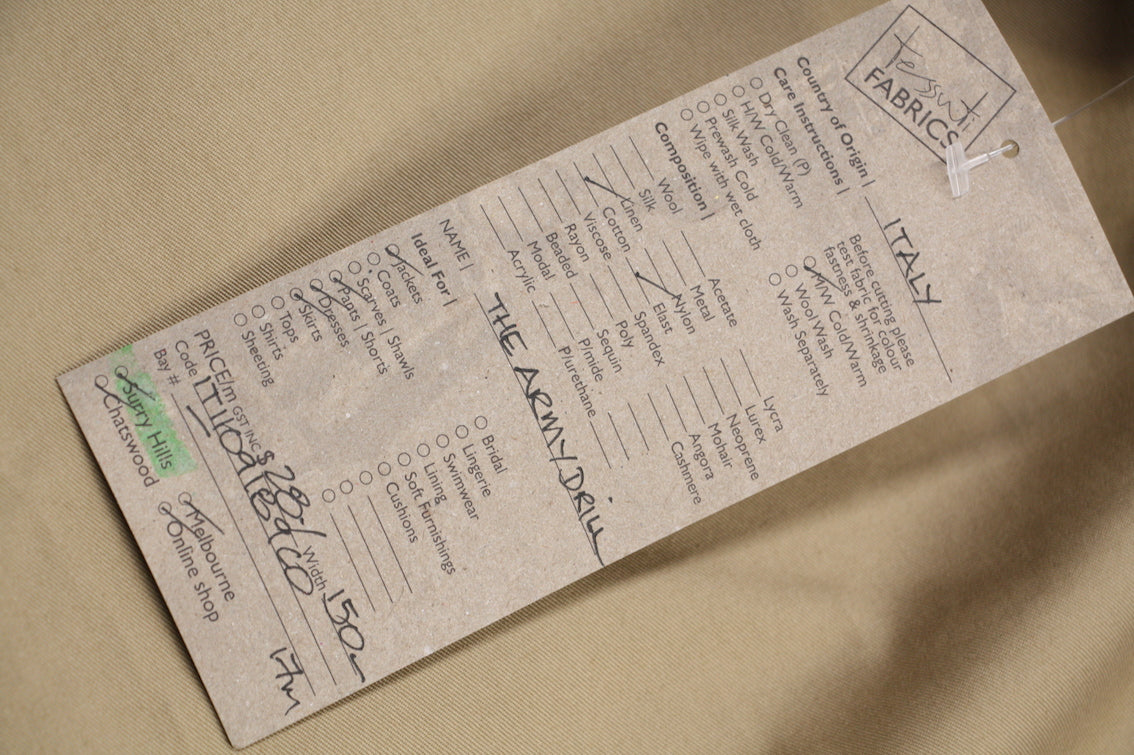 tessuti
FABRICS
Country of Origin | ITALY
Care Instructions |
Dry Clean (P)
H/W Cold/Warm
Silk Wash
Prewash Cold
Wipe with wet cloth
Before cutting please
test fabric for colour
fastness & shrinkage
M/W Cold/Warm
Wool Wash
Wash Separately
Composition |
Wool
Silk
Linen
Cotton
Viscose
Rayon
Beaded
Modal
Acrylic
Acetate
Metal
Nylon
Elast
Spandex
Poly
Sequin
P/mide
P/urethane
Lycra
Lurex
Neoprene
Mohair
Angora
Cashmere
NAME | THE ARMY DRILL
Ideal For |
Jackets
Coats
Scarves | Shawls
Pants | Shorts
Dresses
Skirts
Tops
Shirts
Sheeting
Bridal
Lingerie
Swimwear
Lining
Soft Furnishings
Cushions
PRICE/m GST INC $28 Width 150
Code
Bay # 17m
Surry Hills
Chatswood
Melbourne
Online shop